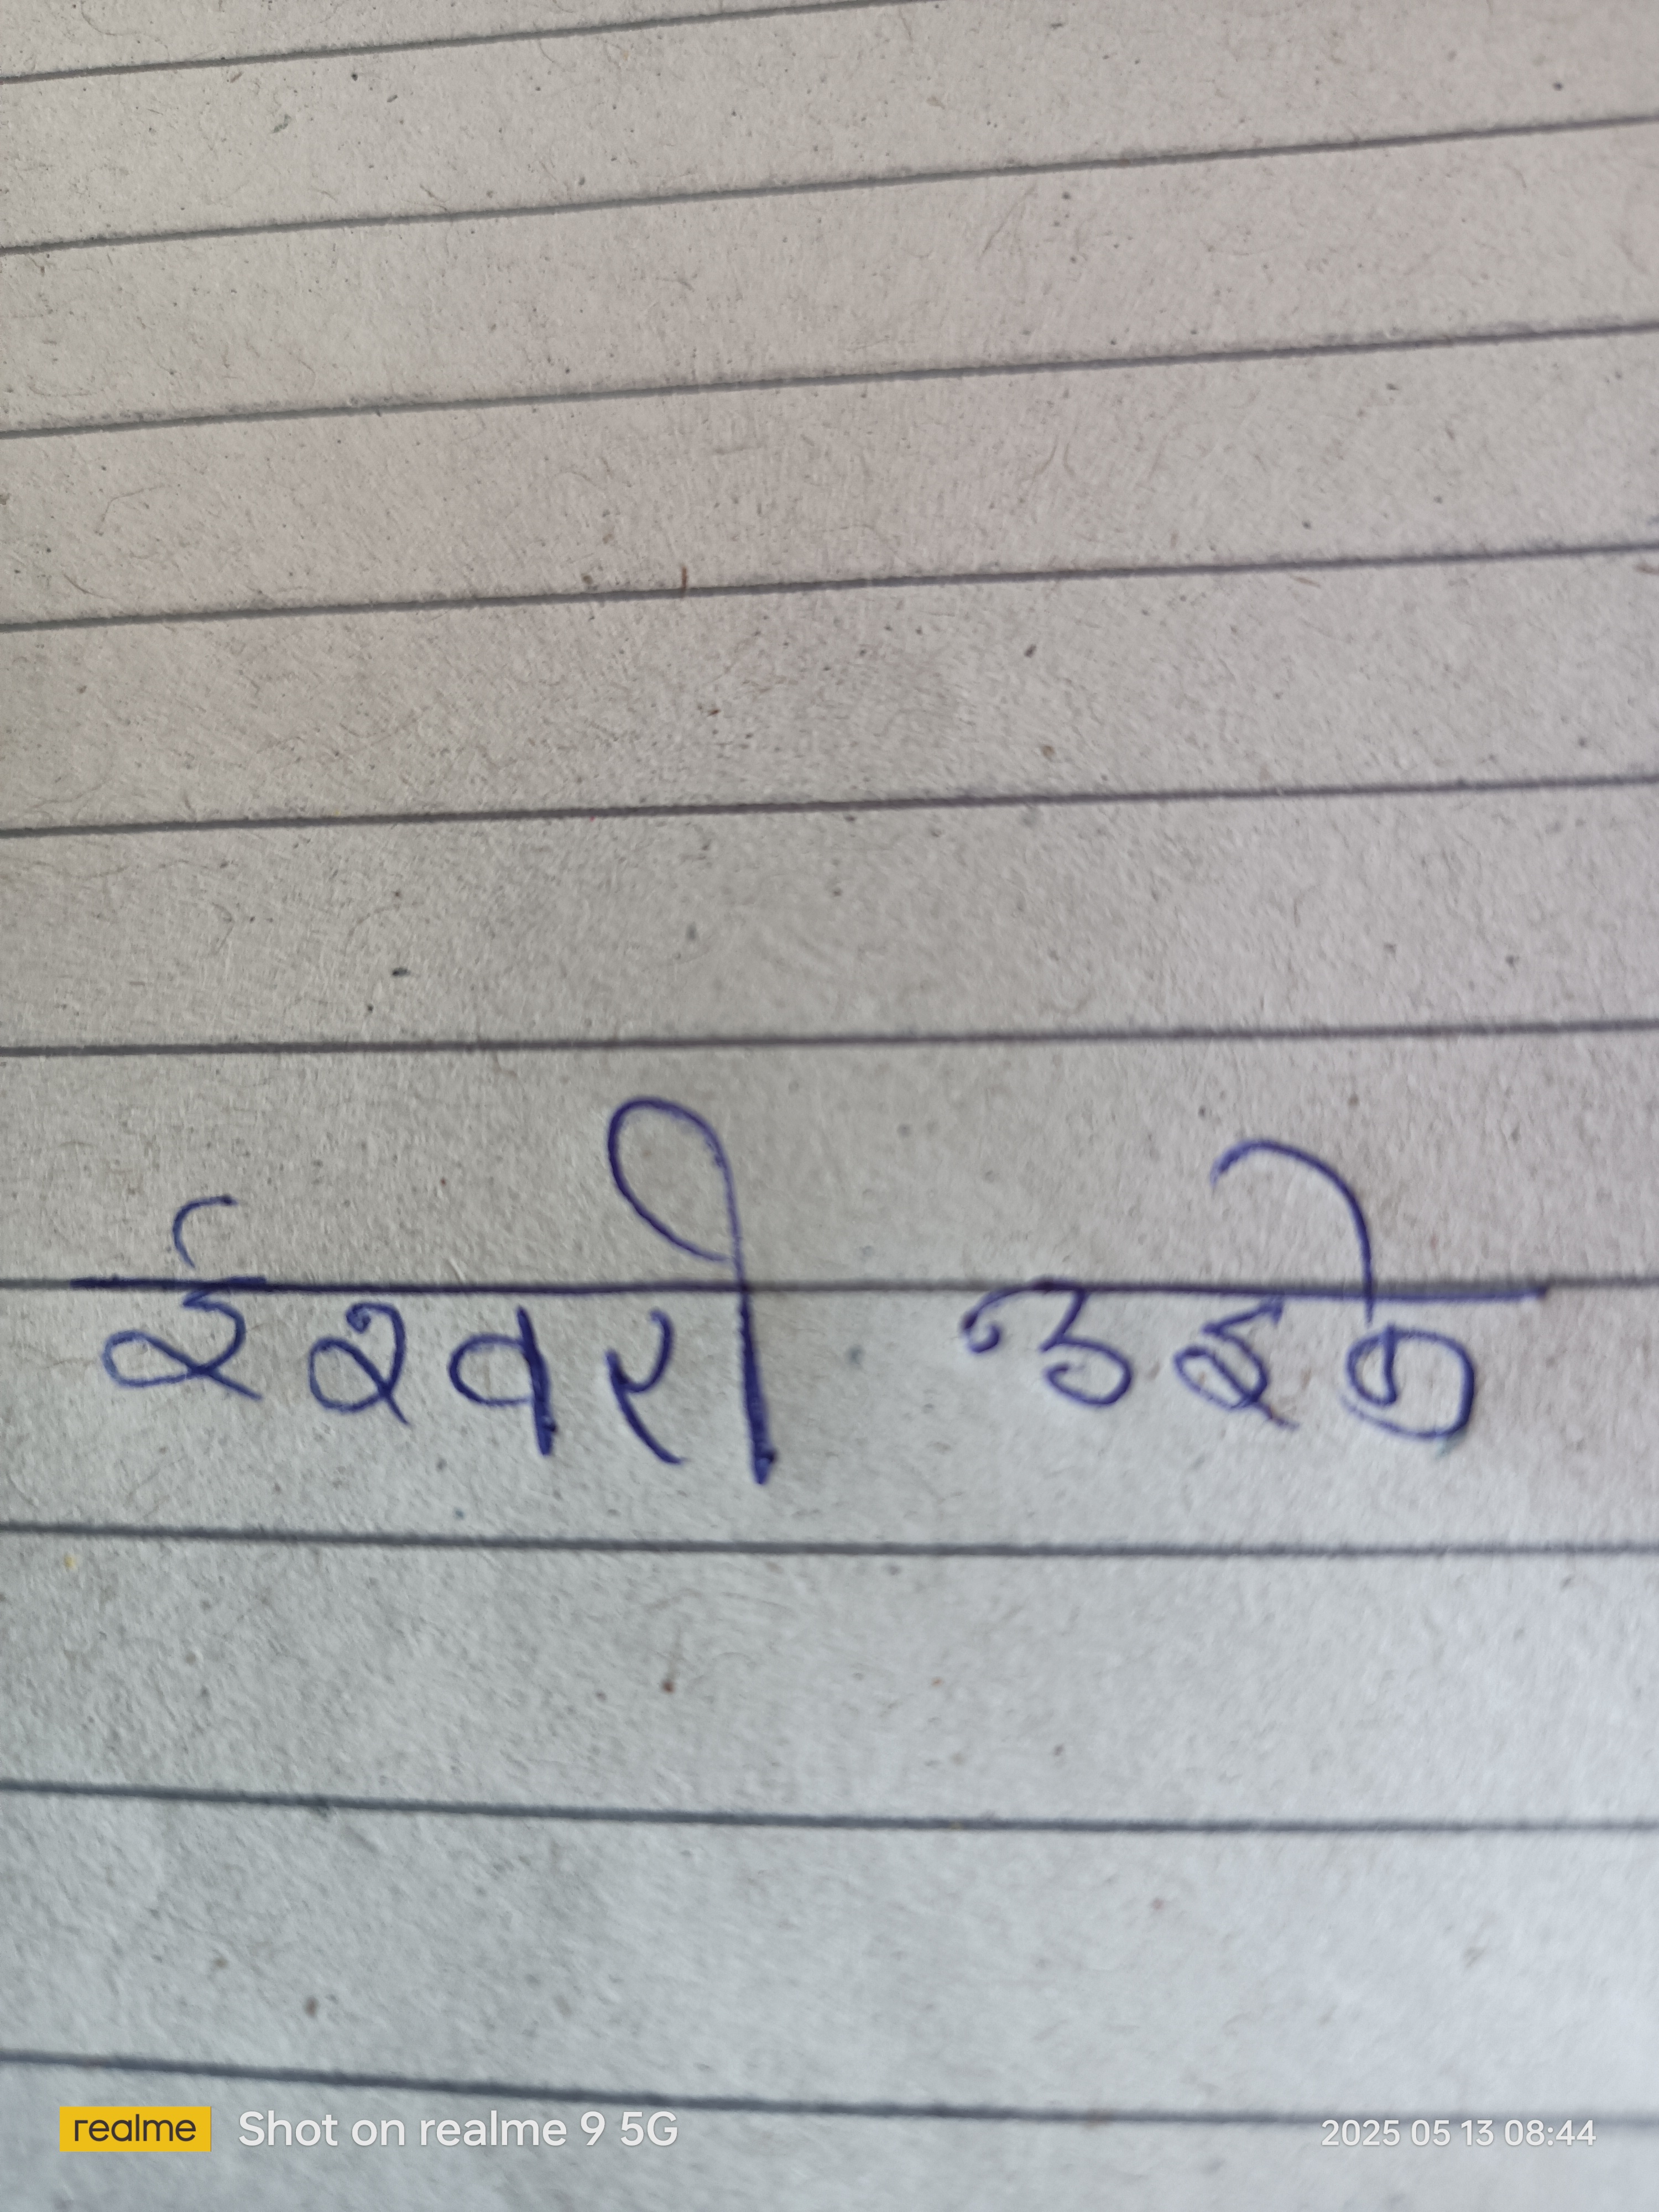 ईश्वरी उइके
realme Shot on realme 9 5G
2025 05 13 08:44